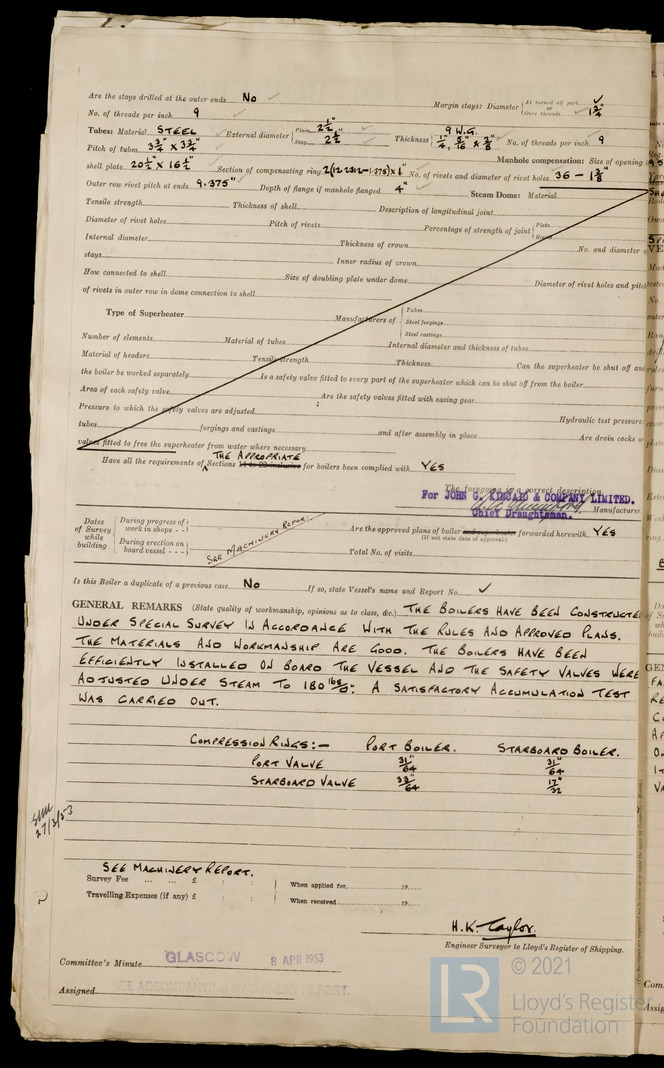 Are the stays drilled at the outer ends No ✓ Margin stays: Diameter { At turned off part, ✓ or Over threads 1¾"
No. of threads per inch 9 ✓
Tubes: Material STEEL ✓ External diameter { Plain 2½" ✓ Stay 2½" ✓ Thickness { 9 W.G. ¼", 5/16" & ⅜" No. of threads per inch 9
Pitch of tubes 3¾" × 3¾" ✓ Manhole compensation: Size of opening in
shell plate 20½" × 16½" Section of compensating ring No. of rivets and diameter of rivet holes 36 - 1⅜"
Outer row rivet pitch at ends 9.375" Depth of flange if manhole flanged 4" ✓ Steam Dome: Material
Tensile strength Thickness of shell Description of longitudinal joint
Diameter of rivet holes Pitch of rivets Percentage of strength of joint { Plate Rivets
Internal diameter Thickness of crown No. and diameter of
stays Inner radius of crown
How connected to shell Size of doubling plate under dome Diameter of rivet holes and pitch
of rivets in outer row in dome connection to shell
Type of Superheater Manufacturers of { Tubes Steel forgings Steel castings
Number of elements Material of tubes Internal diameter and thickness of tubes
Material of headers Tensile strength Thickness Can the superheater be shut off and
the boiler be worked separately Is a safety valve fitted to every part of the superheater which can be shut off from the boiler
Area of each safety valve Are the safety valves fitted with easing gear
Pressure to which the safety valves are adjusted Hydraulic test pressure:
tubes forgings and castings and after assembly in place Are drain cocks or
valves fitted to free the superheater from water where necessary
Have all the requirements of THE APPROPRIATE Sections 14 to 22 inclusive for boilers been complied with YES
The foregoing is a correct description
For JOHN G. KINCAID & COMPANY LIMITED.
Manufacturer.
Chief Draughtsman.
Dates of Survey while building { During progress of work in shops - - During erection on board vessel - - - SEE MACHINERY REPORT.
Are the approved plans of boiler and superheater forwarded herewith YES
(If not state date of approval.)
Total No. of visits
Is this Boiler a duplicate of a previous case No If so, state Vessel's name and Report No. ✓
GENERAL REMARKS (State quality of workmanship, opinions as to class, &c.) THE BOILERS HAVE BEEN CONSTRUCTED
UNDER SPECIAL SURVEY IN ACCORDANCE WITH THE RULES AND APPROVED PLANS.
THE MATERIALS AND WORKMANSHIP ARE GOOD. THE BOILERS HAVE BEEN
EFFICIENTLY INSTALLED ON BOARD THE VESSEL AND THE SAFETY VALVES WERE
ADJUSTED UNDER STEAM TO 180 lbs/□". A SATISFACTORY ACCUMULATION TEST
WAS CARRIED OUT.
COMPRESSION RINGS:- PORT BOILER. STARBOARD BOILER.
PORT VALVE 31/64" 31/64"
STARBOARD VALVE 33/64" 17/32"
27/3/53
SEE MACHINERY REPORT.
Survey Fee ... ... £ : : When applied for 19
Travelling Expenses (if any) £ : : When received 19
H.K. Taylor.
Engineer Surveyor to Lloyd's Register of Shipping.
Committee's Minute GLASGOW 8 APR 1953
Assigned SEE ACCOMPANYING MACHINERY REPORT.
LR © 2021
Lloyd's Register
Foundation